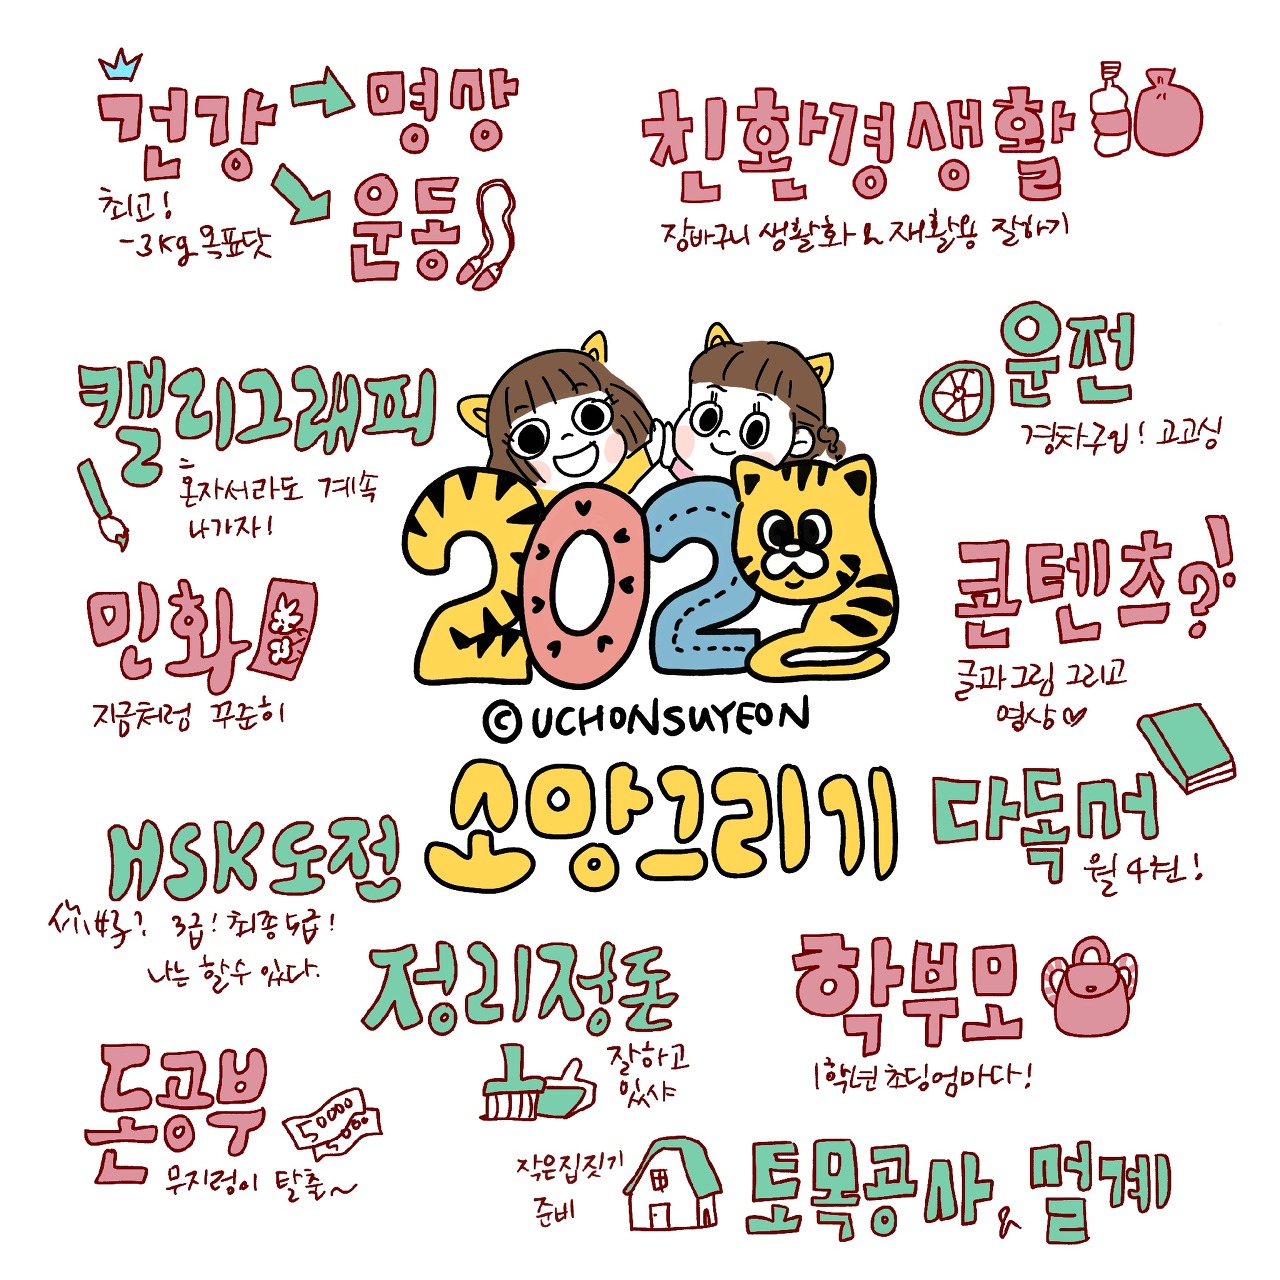 건강 → 명상
↘ 운동
최고!
-3kg 목표닷
친환경생활
장바구니 생활화 & 재활용 잘하기
캘리그래피
혼자서라도 계속
나가자!
운전
경차구입! 고고싱
민화
지금처럼 꾸준히
콘텐츠?!
글과 그림 그리고
영상♡
2022
©UCHONSUYEON
소망그리기
다독머
월 4권!
HSK도전
你好? 3급! 최종 5급!
나는 할수 있다.
정리정돈
잘하고
있샤
학부모
1학년 초딩엄마다!
돈공부
무지렁이 탈출~
50000
5000
작은집짓기
준비
토목공사 & 멀계